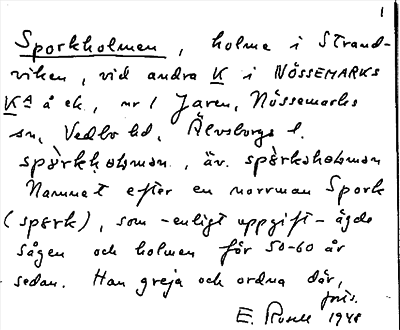 1
Sporkholmen, holme i Strand-
viken, vid andra K i NÖSSEMARKS
Kᵃ å ek., nr 1 Jaren, Nössemarks
sn, Vedbo hd, Älvsborgs l.
spò̈rkhol̥mən, äv. spò̈rkshol̥mən
Namnet efter en norrman Spork
(spørk), som – enligt uppgift – ägde
sågen och holmen för 50-60 år
sedan. Han greja och ordna där,
E. 1948